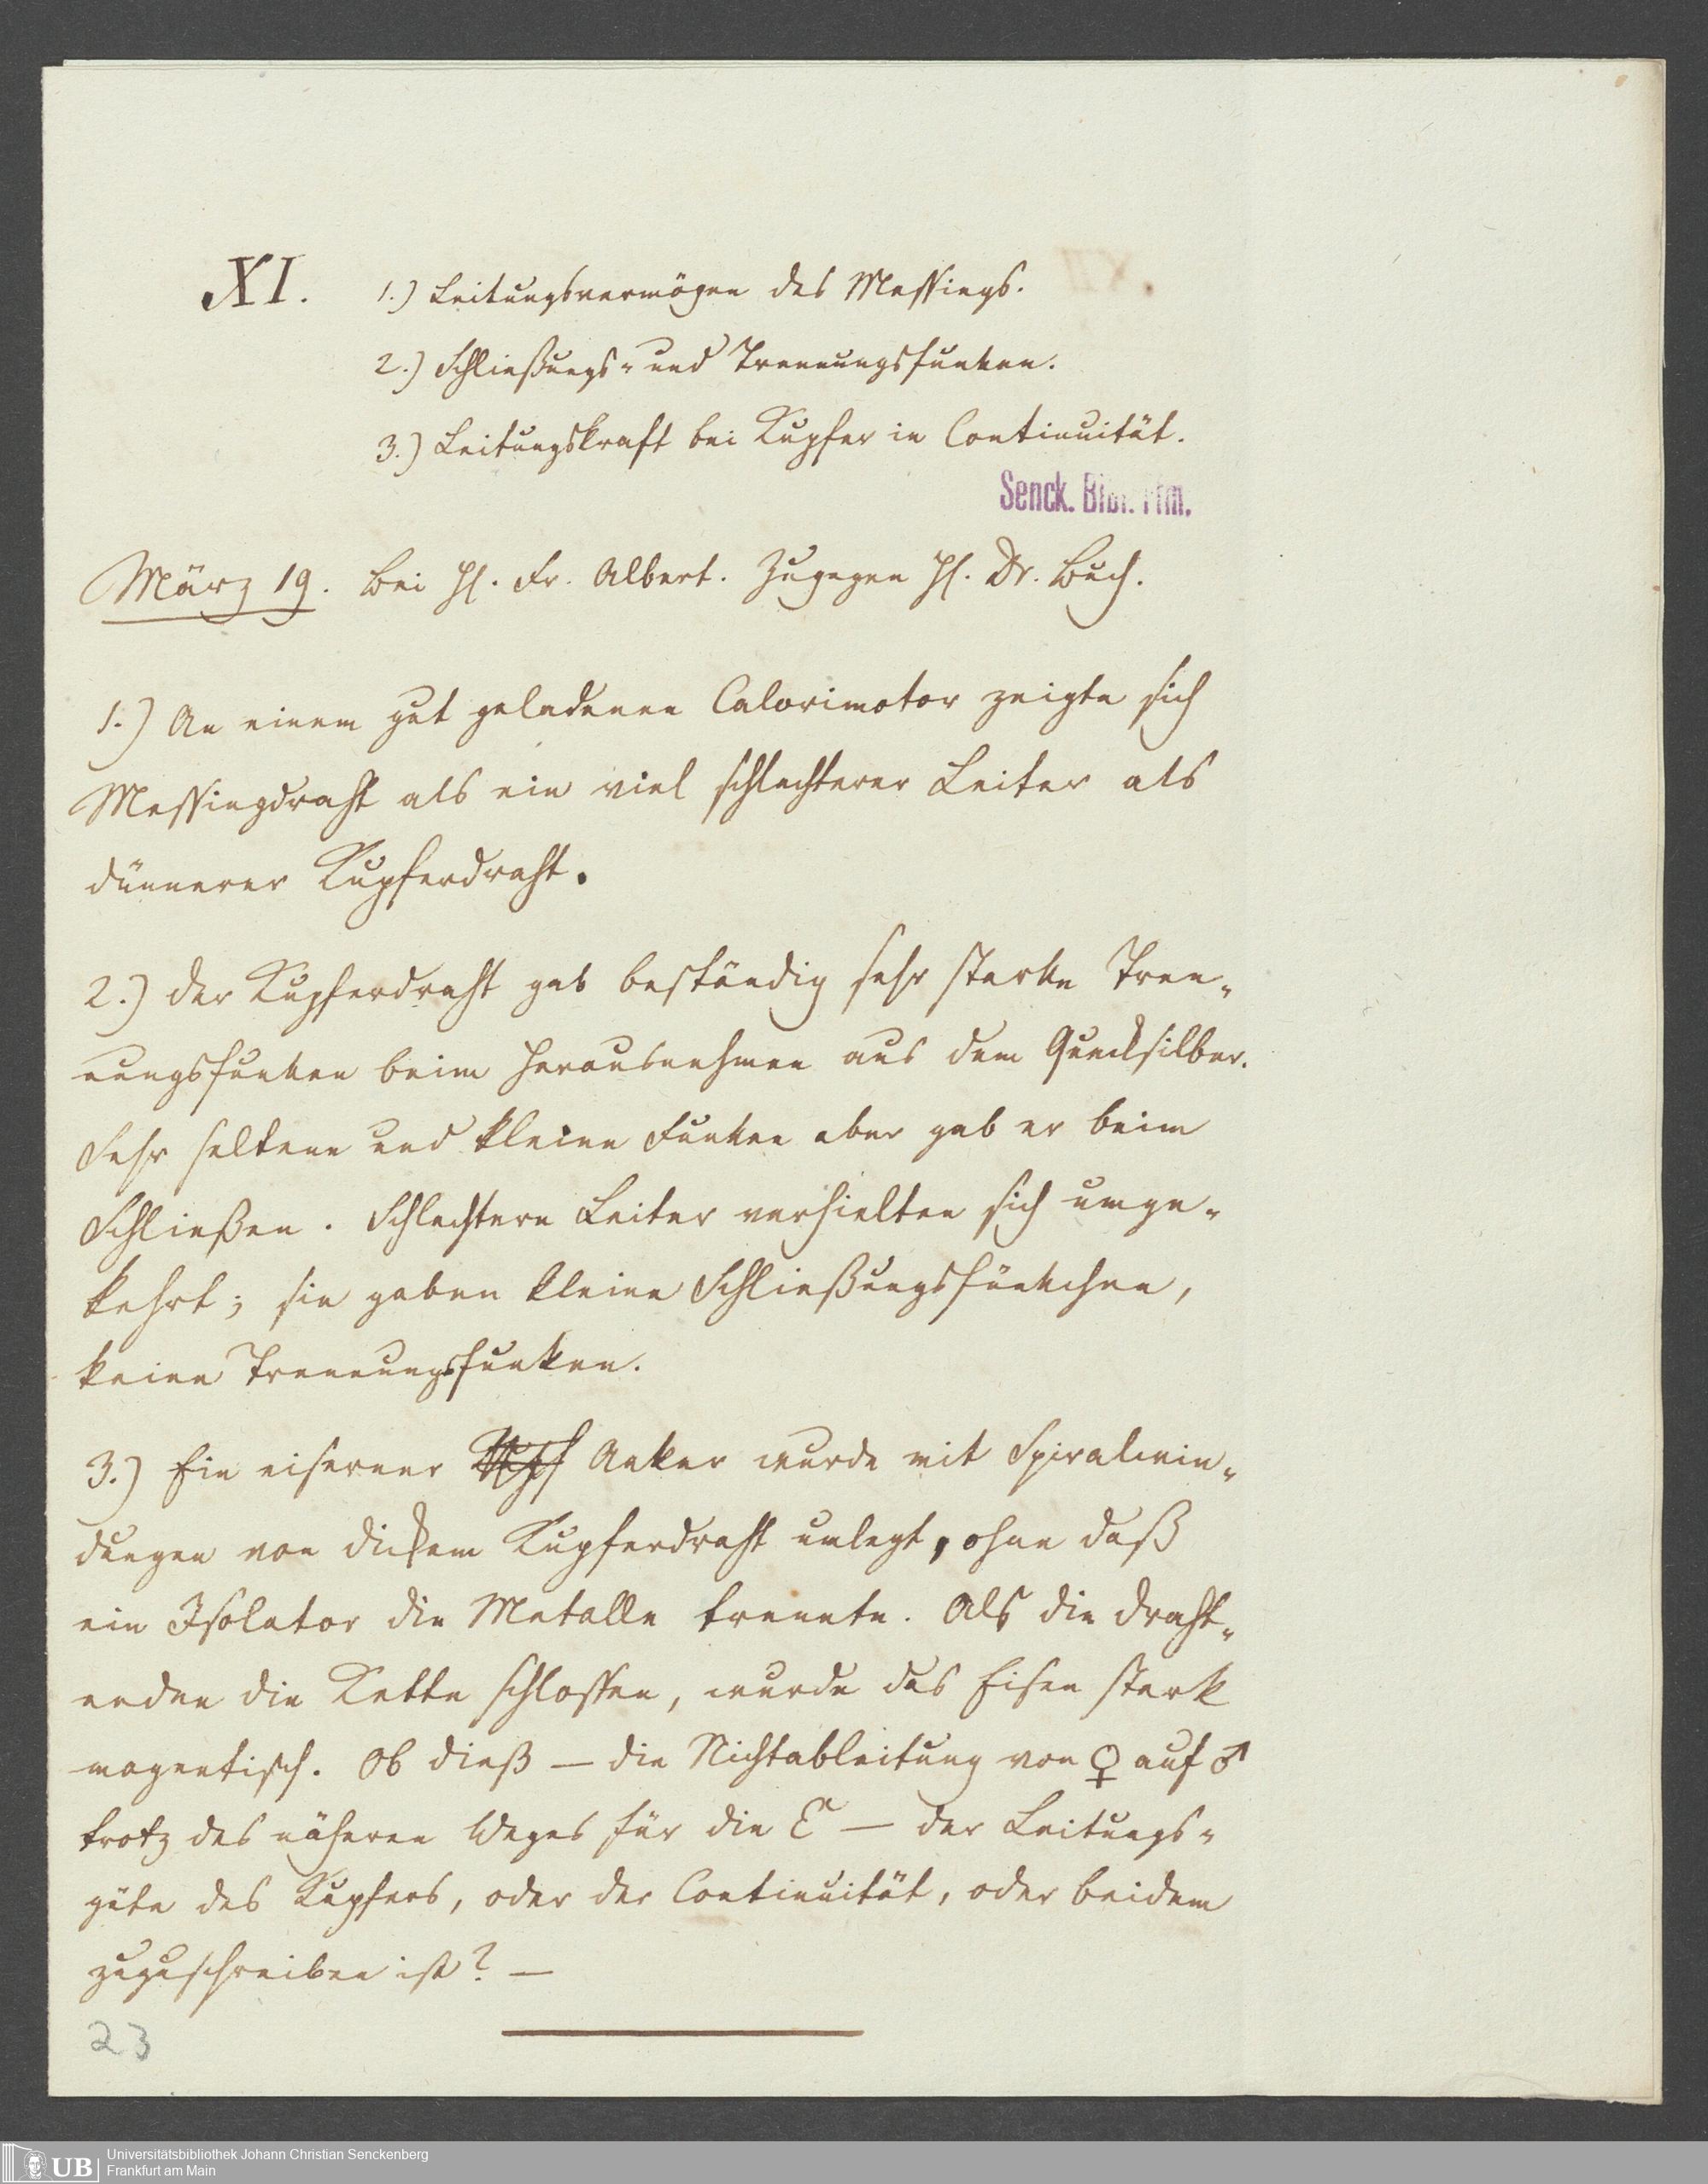 XI. 1.) Leitungsvermögen des Messings.
2.) Schließungs- und Trennungsfunken.
3.) Leitungskraft bei Kupfer in Continuität.
Senck. Bibl. Ffm.
März 19. Bei H. Fr. Albert. Zugegen H. Dr. Buch.
1.) An einem gut geladenen Calorimotor zeigte sich
Messingdraht als ein viel schlechterer Leiter als
dünnerer Kupferdraht.
2.) der Kupferdraht gab beständig sehr starke Tren-
nungsfunken beim Herausnehmen aus dem Quecksilber.
Sehr seltene und kleine Funken aber gab er beim
Schließen. Schlechtere Leiter verhielten sich umge-
kehrt; sie gaben kleine Schließungsfünkchen,
keine Trennungsfunken.
3.) Ein eiserner Anker wurde mit Spiralwin-
dungen von dickem Kupferdraht umlegt, ohne daß
ein Isolator die Metalle trennte. Als die Draht-
enden die Kette schlossen, wurde das Eisen stark
magnetisch. Ob dieß — die Nichtableitung von ♀ auf ♂
trotz des näheren Weges für die E — der Leitungs-
güte des Kupfers, oder der Continuität, oder beidem
zuzuschreiben ist? —
23
UB
Universitätsbibliothek Johann Christian Senckenberg
Frankfurt am Main